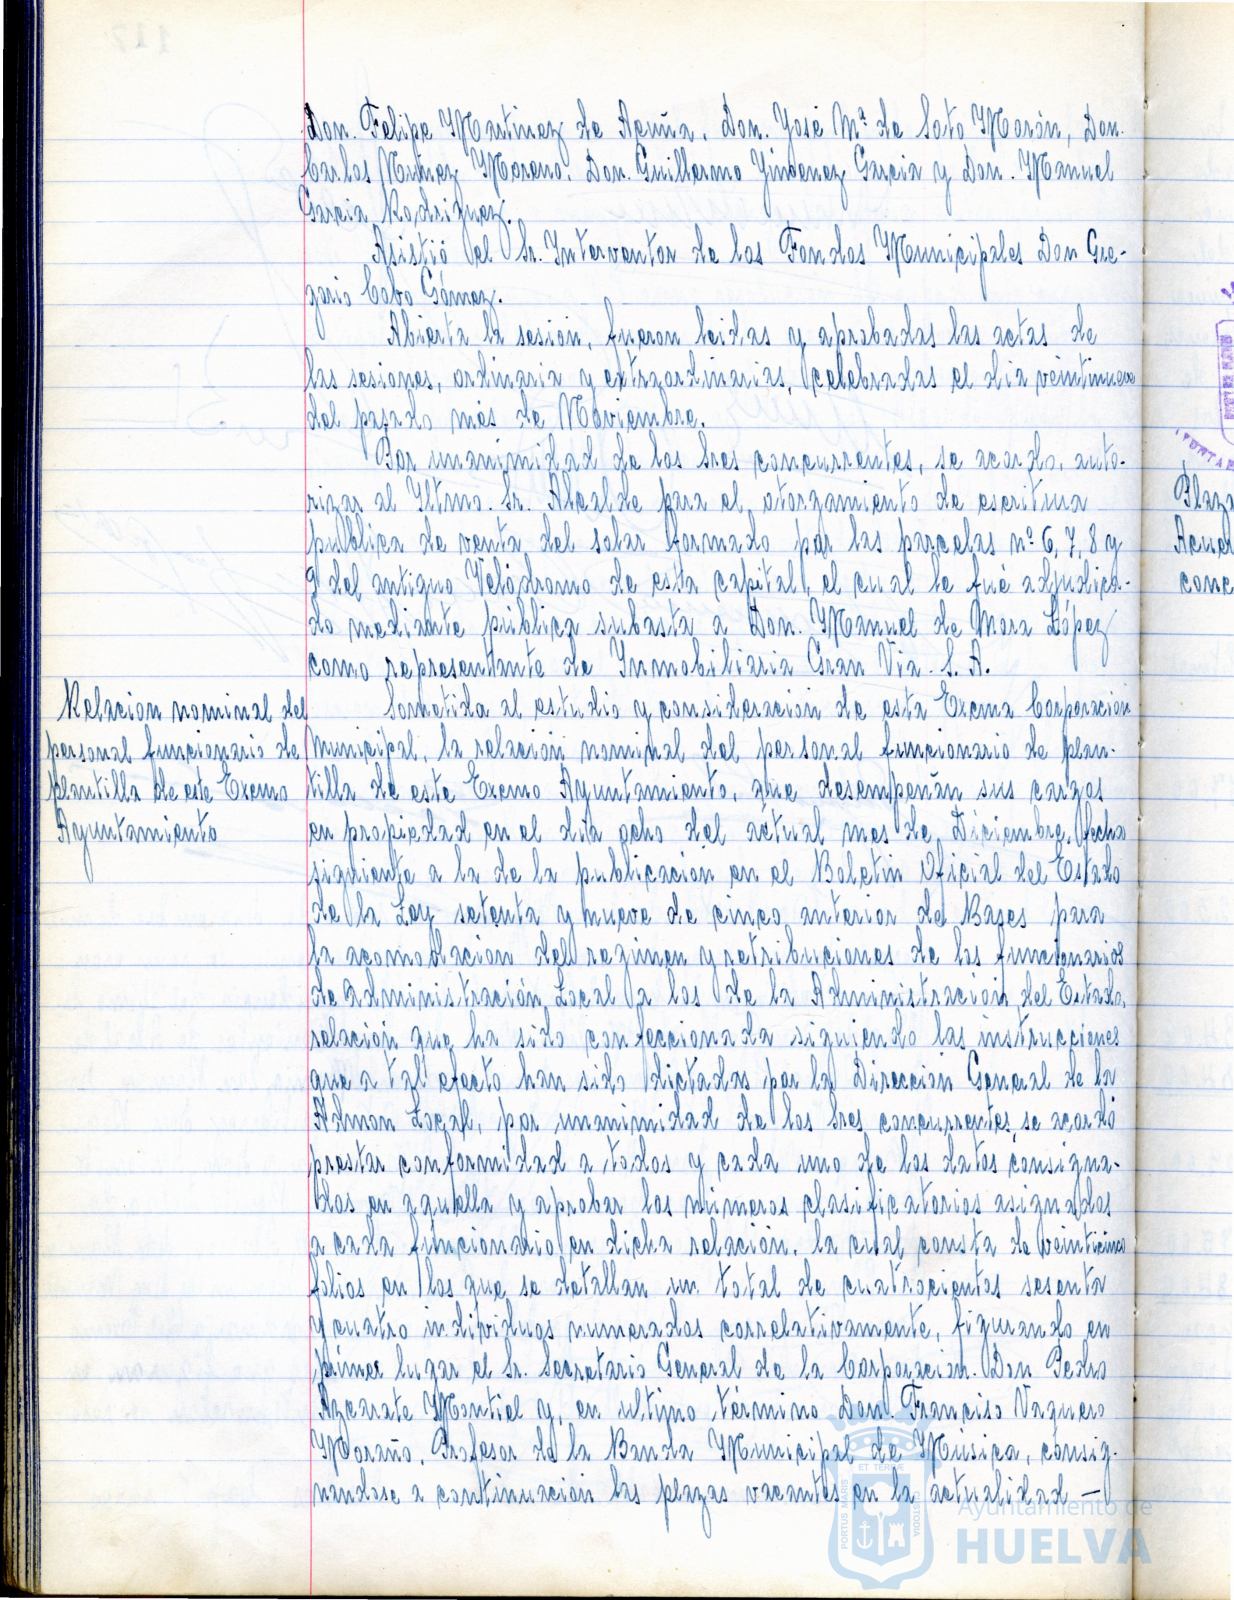 Don. Felipe Martinez de Acuña, Don. José Mª de Soto Morón, Don.
Carlos Muñoz Moreno, Don. Guillermo Jimenez Garcia y Don. Manuel
Garcia Rodriguez.
Asistió el Sr. Interventor de los Fondos Municipales Don Gre-
gorio Cobo Gómez.
Abierta la sesión, fueron leidas y aprobadas las actas de
las sesiones, ordinaria y extraordinarias, celebradas el dia veintinueve
del pasado mes de Noviembre.
Por unanimidad de los Sres concurrentes, se acordo, auto-
rizar al Iltmo. Sr. Alcalde para el otorgamiento de escritura
publica de venta del solar formado por las parcelas nº 6, 7, 8 y
9 del antiguo Velódromo de esta capital, el cual le fué adjudica-
do mediante pública subasta a Don. Manuel de Mora López
como representante de Inmobiliaria Gran Via S. A.
Relacion nominal del
personal funcionario de
plantilla de este Excmo
Ayuntamiento
Sometida al estudio y consideración de esta Excma Corporación
Municipal, la relación nominal del personal funcionario de plan-
tilla de este Excmo Ayuntamiento, que desempeñan sus cargos
en propiedad en el dia ocho del actual mes de Diciembre, fecha
siguiente a la de la publicacion en el Boletin Oficial del Estado
de la Ley setenta y nueve de cinco anterior de Bases para
la acomodación del regimen y retribuciones de los funcionarios
de administración Local a los de la Administración del Estado,
relación que ha sido confeccionada siguiendo las instrucciones
que a tal efecto han sido dictadas por la Dirección General de la
Admon Local, por unanimidad de los Sres concurrentes, se acordó
prestar conformidad a todos y cada uno de los datos consigna-
dos en aquella y aprobar los números clasificatorios asignados
a cada funcionario en dicha relación, la cual consta de veinticinco
folios en los que se detallan un total de cuatrocientos sesenta
y cuatro individuos numerados correlativamente, figurando en
primer lugar el Sr. Secretario General de la Corporacion. Don Pedro
Azcarate Montiel y, en ultimo término Don. Franciso Vaquero
Moraño, Profesor de la Banda Municipal de Música, consig-
nandose a continuación las plazas vacantes en la actualidad —
Plaza
conc
PORTUS MARIS
ET TERRAE
CUSTODIA
Ayuntamiento de
HUELVA